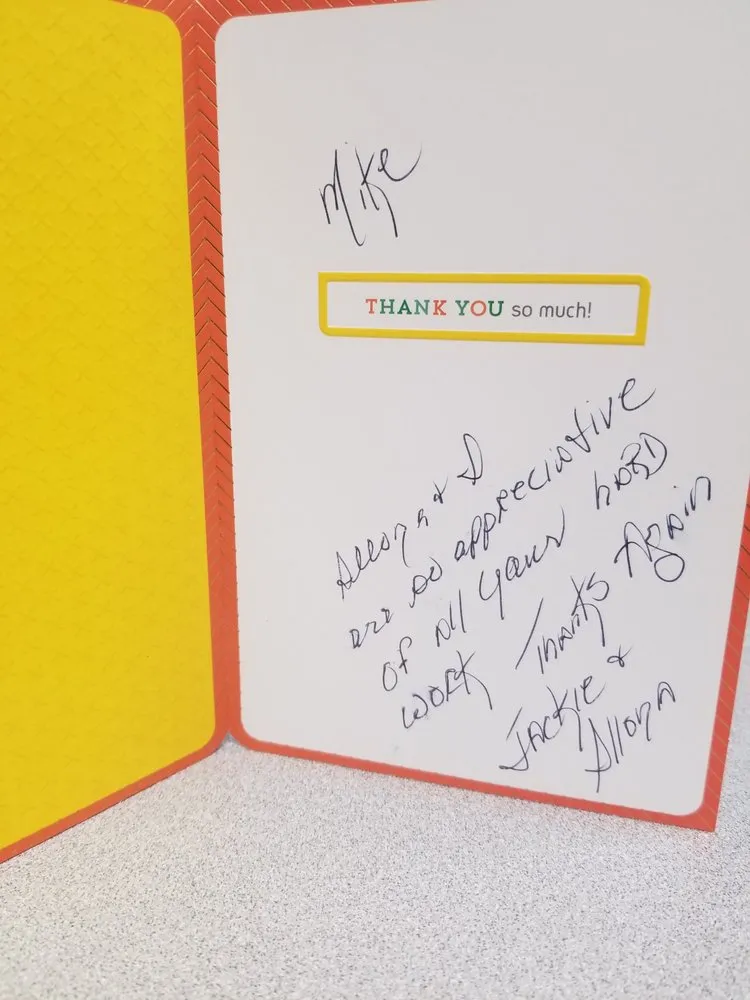 Mike
THANK YOU so much!
Allona & I
are so appreciative
of all your hard
work Thanks Again
Jackie &
Allona